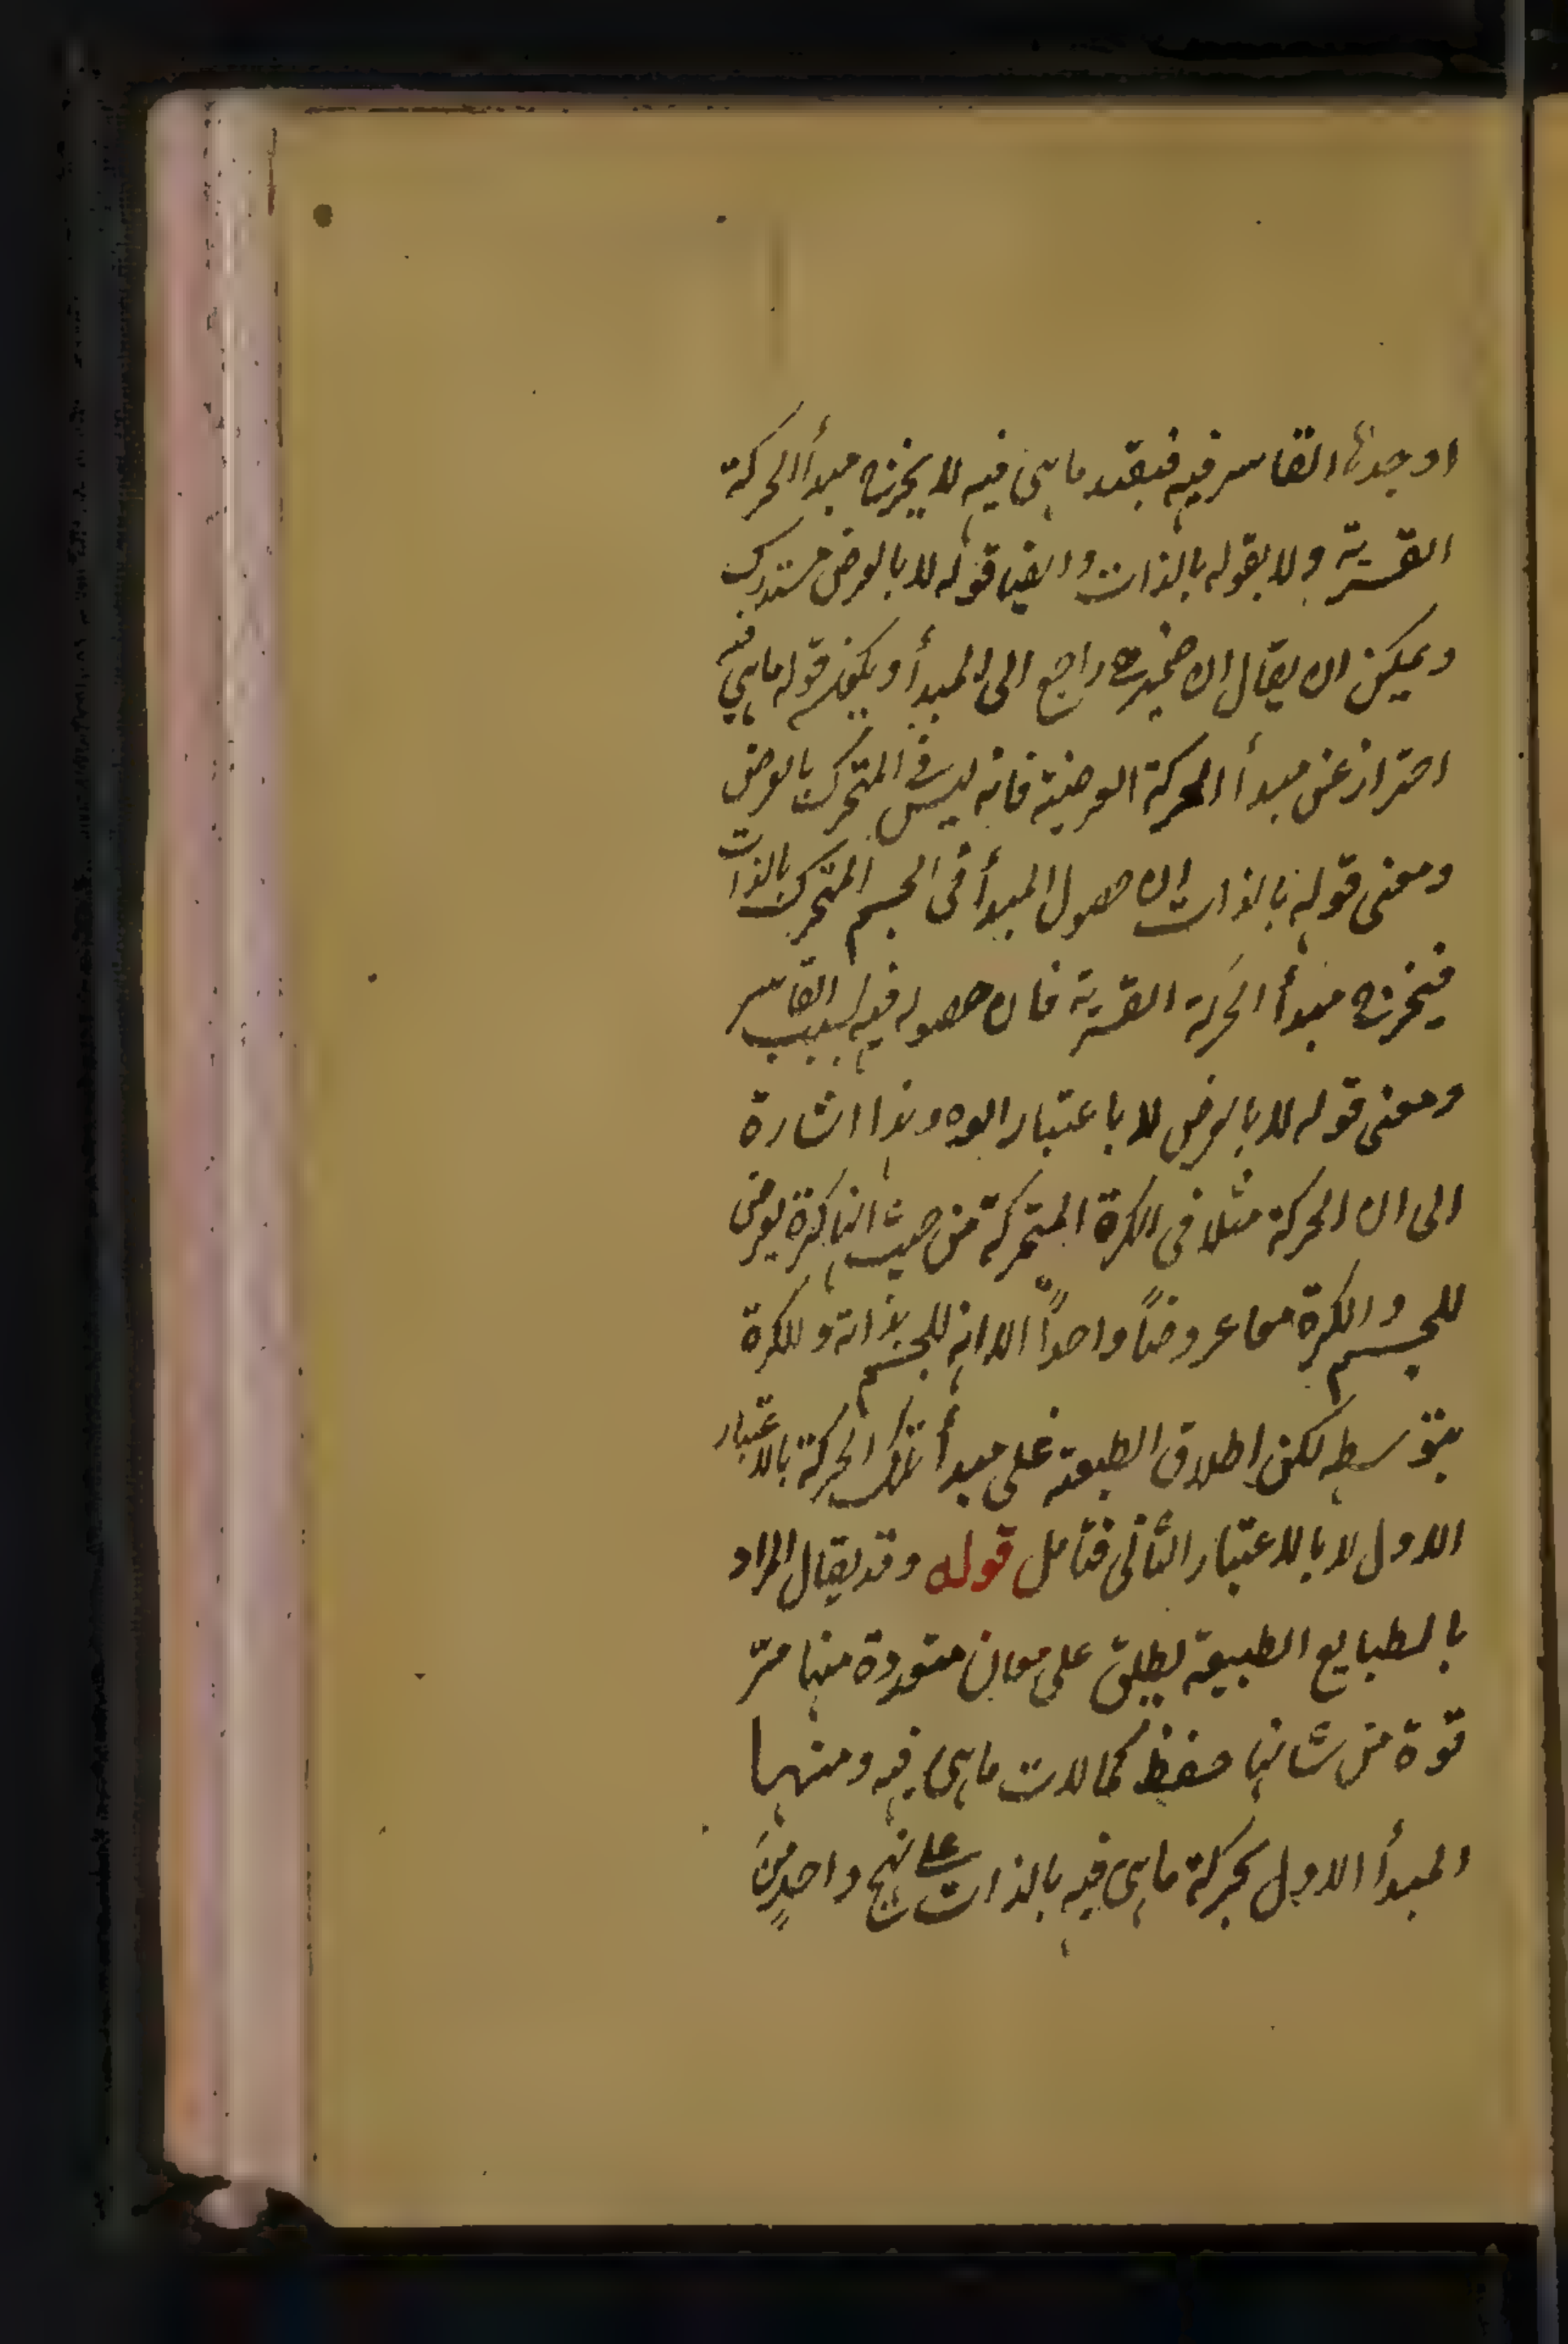 اوجدها القاسر فيه فبقيد ما هى فيه لا يخرج مبدأ الحركة
القسرية ولا بقوله بالذات وايضا قوله لا بالعرض مستدرك
ويمكن ان يقال ان ضمير هى راجع الى المبدأ ويكون قوله ما هي فيه
احتراز عن مبدأ الحركة العرضية فانه ليس في المتحرك بالعرض
ومعنى قوله بالذات ان حصول المبدأ فى الجسم المتحرك بالذات
فيخرج مبدأ الحركة القسرية فان حصوله فيه بسبب القاسر
ومعنى قوله لا بالعرض لا باعتبار العرض وهذا اشارة
الى ان الحركة مثلا فى الكرة المتحركة من حيث انها كرة يعرض
للجسم والكرة معا عروضاً واحداً الا انه للجسم بذاته وللكرة
بتوسطه لكن اطلاق الطبيعة على مبدأ تلك الحركة بالاعتبار
الاول لا بالاعتبار الثانى فتأمل قوله وقد يقال المراد
بالطبايع الطبيعة يطلق على معان متعددة منها
قوة من شانها حفظ كمالات ما هى فيه ومنها
المبدأ الاول لحركة ما هى فيه بالذات على نهج واحدٍ منَ